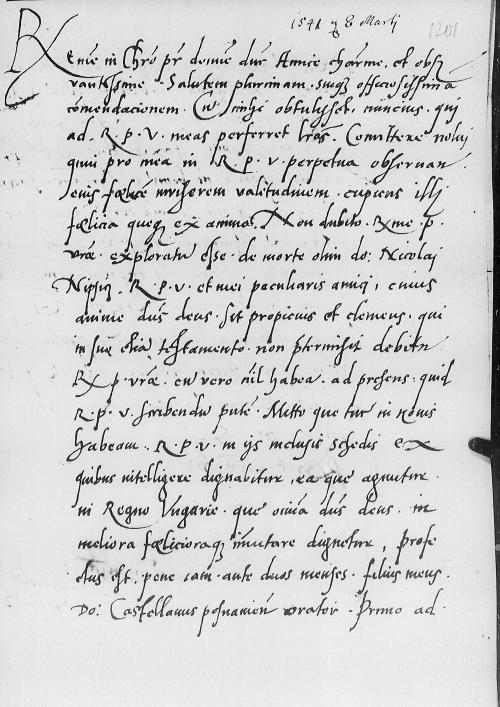 1541 8 Marti
1201
R
eme in Chro pr domine due Amice charme, et obser
vantissime. Salutem plurimam. suorq officiosissimā
comendacionem. Cu mihi obtulisset, nuncius. qui
ad. R. p. v. meas perferret lras. Comittere nolui
quin pro mea in R. p. v. perpetua observan
eius fœlicē inviserem valitudinem. cupiens illi
fœlicia queq ex animo. Non dubito. Rme p.
vrā. exploratū esse. de morte olim do: Nicolai
Nipsiz. R. p. v. et mei peculiaris amici, cuius
anime dus deus. sit propicius et clemens. qui
in suo etiā testamento. non ptermisit debitū
R p. vrae. eu vero nil habeā. ad presens. quid
R. p. v. scribendū putē. Mitto que tūr in novis
habeam. R. p. v. in ijs inclusis schedis ex
quibus intelligere dignabitur, ea que aguntur.
in Regno Vngarie. que omia dus deus. in
meliora fœlicioraq imutare dignetur, profe
ctus est. pene iam. ante duos menses. filius meus.
Do: Castellanus posnanien orator. Primo ad.